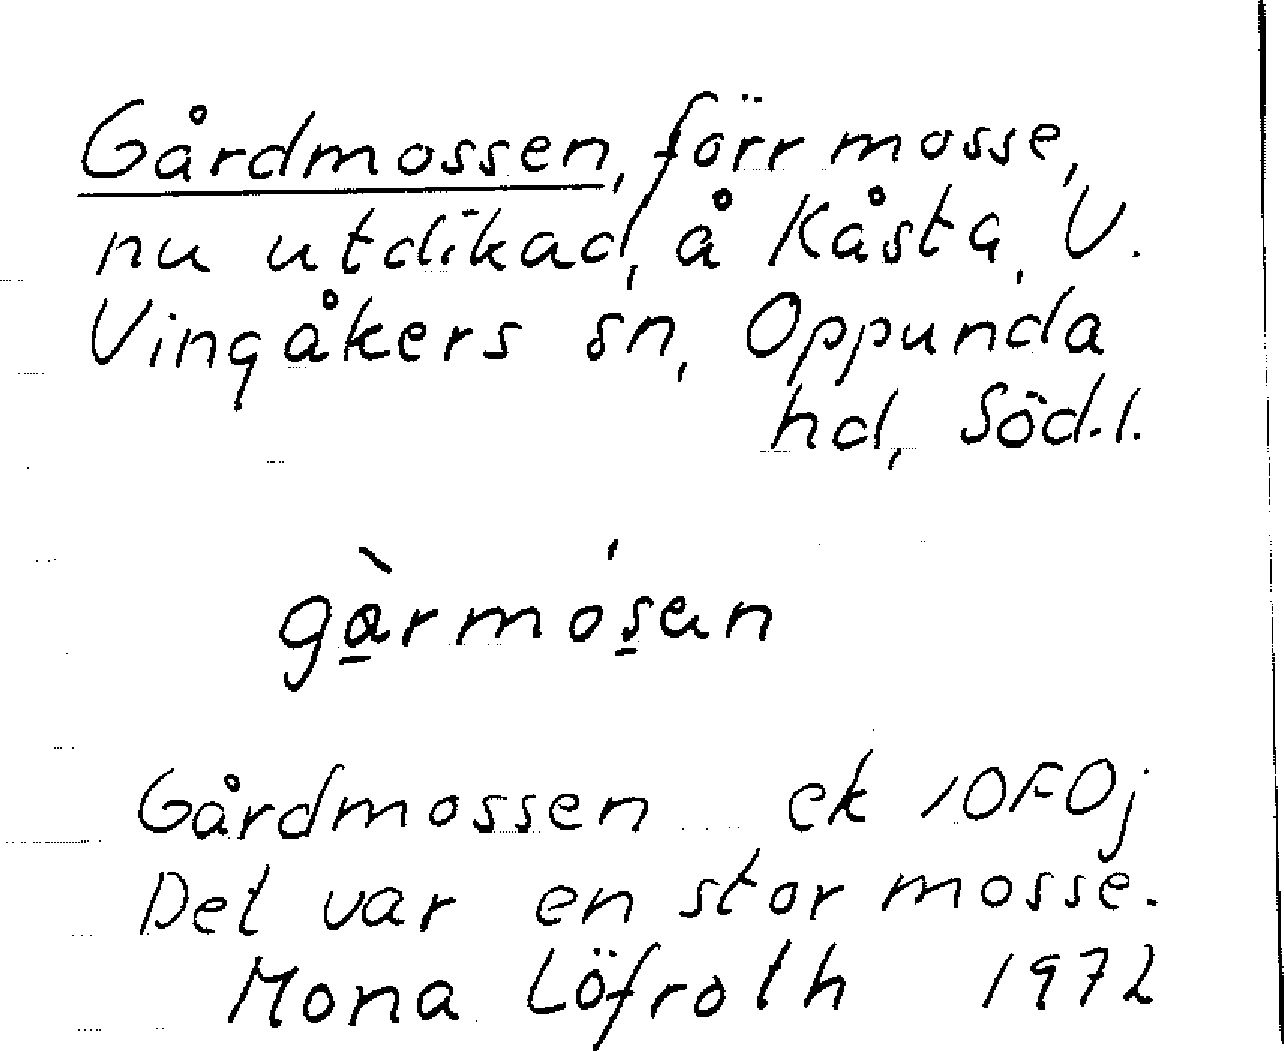 Gårdmossen, förr mosse,
nu utdikad, å Kåsta, V.
Vingåkers sn, Oppunda
hd, Söd.l.
gàrmósen
Gårdmossen ek 10F0j
Det var en stor mosse.
Mona Löfroth 1972